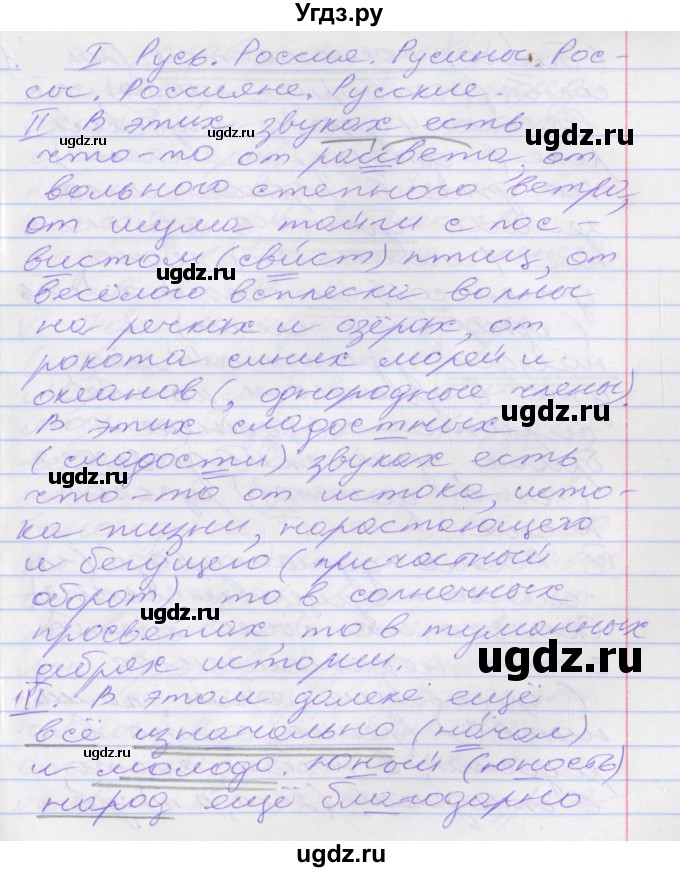 Угдз.ру
I Русь. Россия. Русины. Рос-
сы. Россияне. Русские.
ugdz.ru ugdz.ru
II В этих звуках есть
что-то от рассвета, от
вольного степного ветра,
от шума тайги с пос-
вистом (свист) птиц, от
ugdz.ru ugdz.ru
весёлого всплеска волны
на речках и озёрах, от
рокота синих морей и
океанов (, однородные члены)
ugdz.ru
В этих сладостных
(сладости) звуках есть
ugdz.ru
что-то от истока, исто-
ка жизни, нарастающего
и бегущего (причастный
оборот) то в солнечных
ugdz.ru
просветах, то в туманных
дебрях истории.
ugdz.ru
III. В этом далеке ещё
всё изначально (начал)
ugdz.ru
и молодо. Юный (юность)
народ ещё благодарно
ugdz.ru ugdz.ru
ugdz.ru